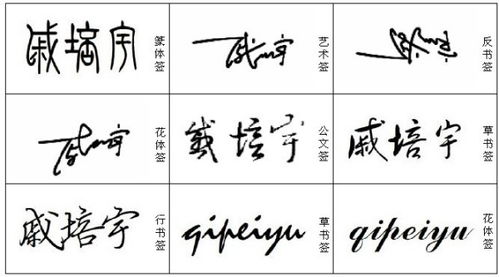 戚培宇 篆体签
戚培宇 艺术签
戚培宇 反书签
戚培宇 花体签
戚培宇 公文签
戚培宇 草书签
戚培宇 行书签
qipeiyu 草书签
qipeiyu 花体签